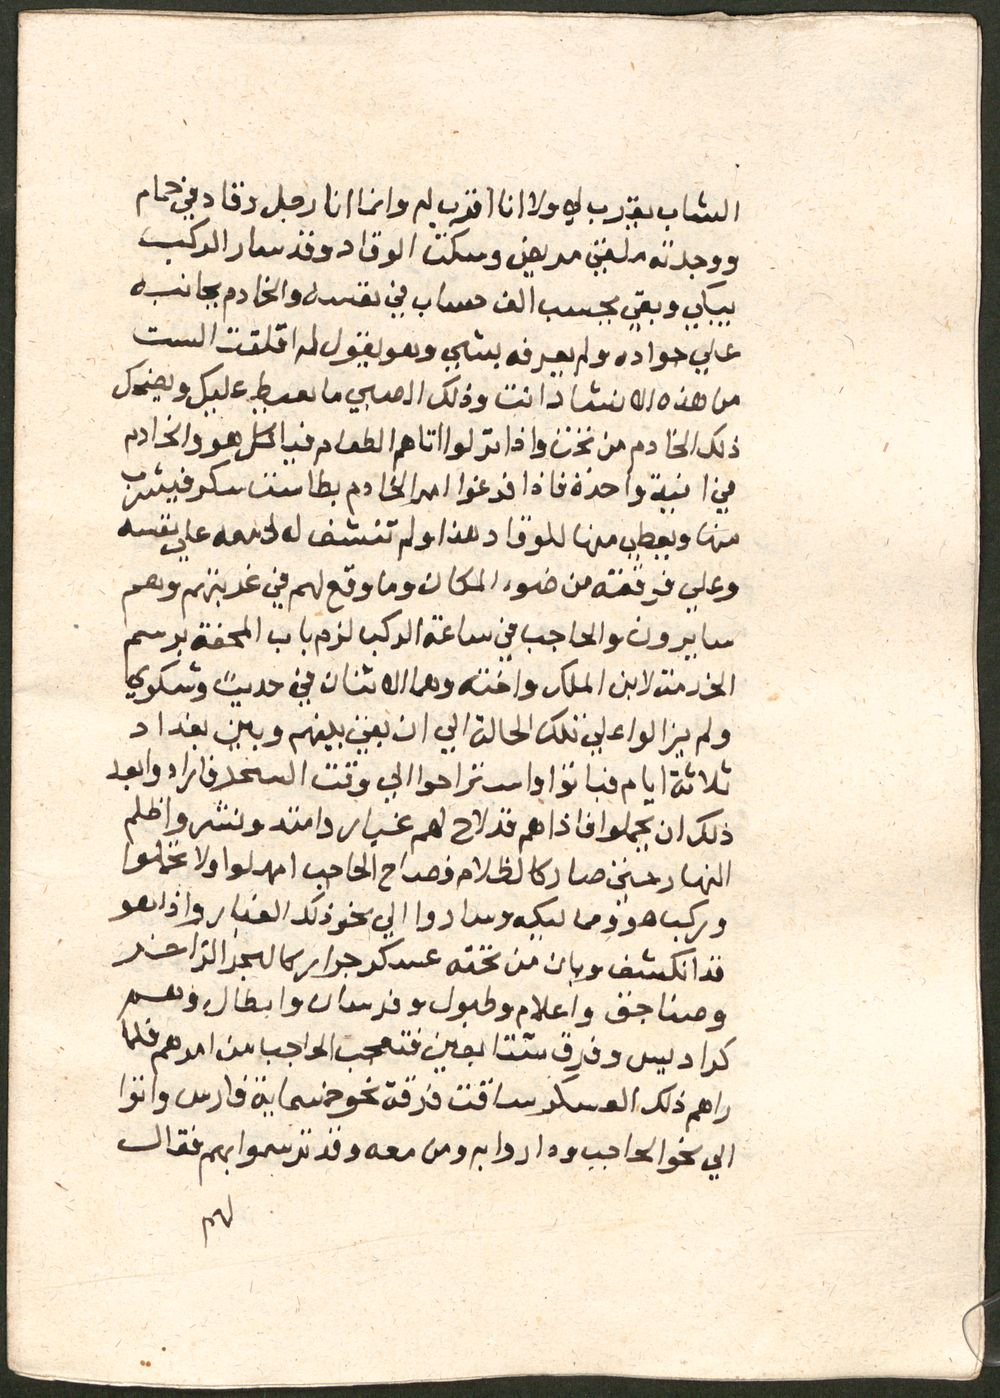 الشاب يقرب لي ولا انا اقرب له وانما انا رجل وقاد في حمام
ووجدته ملقي مريض وسكت الوقاد وقد سار الركب
يبكي وبقي يحسب الف حساب في نفسه والخادم بجانبه
علي جواده ولم يعرفه بشي وهو يقول له اقلقت الست
من هذه الانشاد انت وذلك الصبي ما نعيط عليك ويضحك
ذلك الخادم من تحت واذا نزلوا اتاهم الطعام فياكل هو والخادم
في انية واحدة فاذا فرغوا امر الخادم بطاست سكر فيشرب
منها ويعطي منها للوقاد هذا ولم تنشف له دمعه علي نفسه
وعلي فرقته من ضوء المكان وما وقع لهم في غربتهم وهم
سايرون والحاجب في ساعة الركب لزم باب المحفة برسم
الخدمت لابن الملك واخته وهما الاتنان في حديث وشكوي
ولم يزالوا علي تلك الحالة الي ان بقي بينهم وبين بغداد
ثلاثة ايام فباتوا واستراحوا الي وقت السحر فارادوا بعد
ذلك ان يحملوا فاذاهم قد لاح لهم غبار وامتد ونشر واظلم
النهار حتي صار كالظلام فصاح الحاجب امهلوا ولا تحملوا
وركب هو ومماليكه وساروا الي نحو ذلك الغبار واذا هو
قد انكشف وبان من تحته عسكر جرار كالبحر الزاخر
وصناجق واعلام وطبول وفرسان وابطال وهم
كراديس وفرق شتا بعين فتعجب الحاجب من امرهم فلما
راهم ذلك العسكر ساقت فرقة نحو خمسماية فارس واتوا
الي نحو الحاجب وداروا به ومن معه وقد ترسموا بهم فقال
لهم